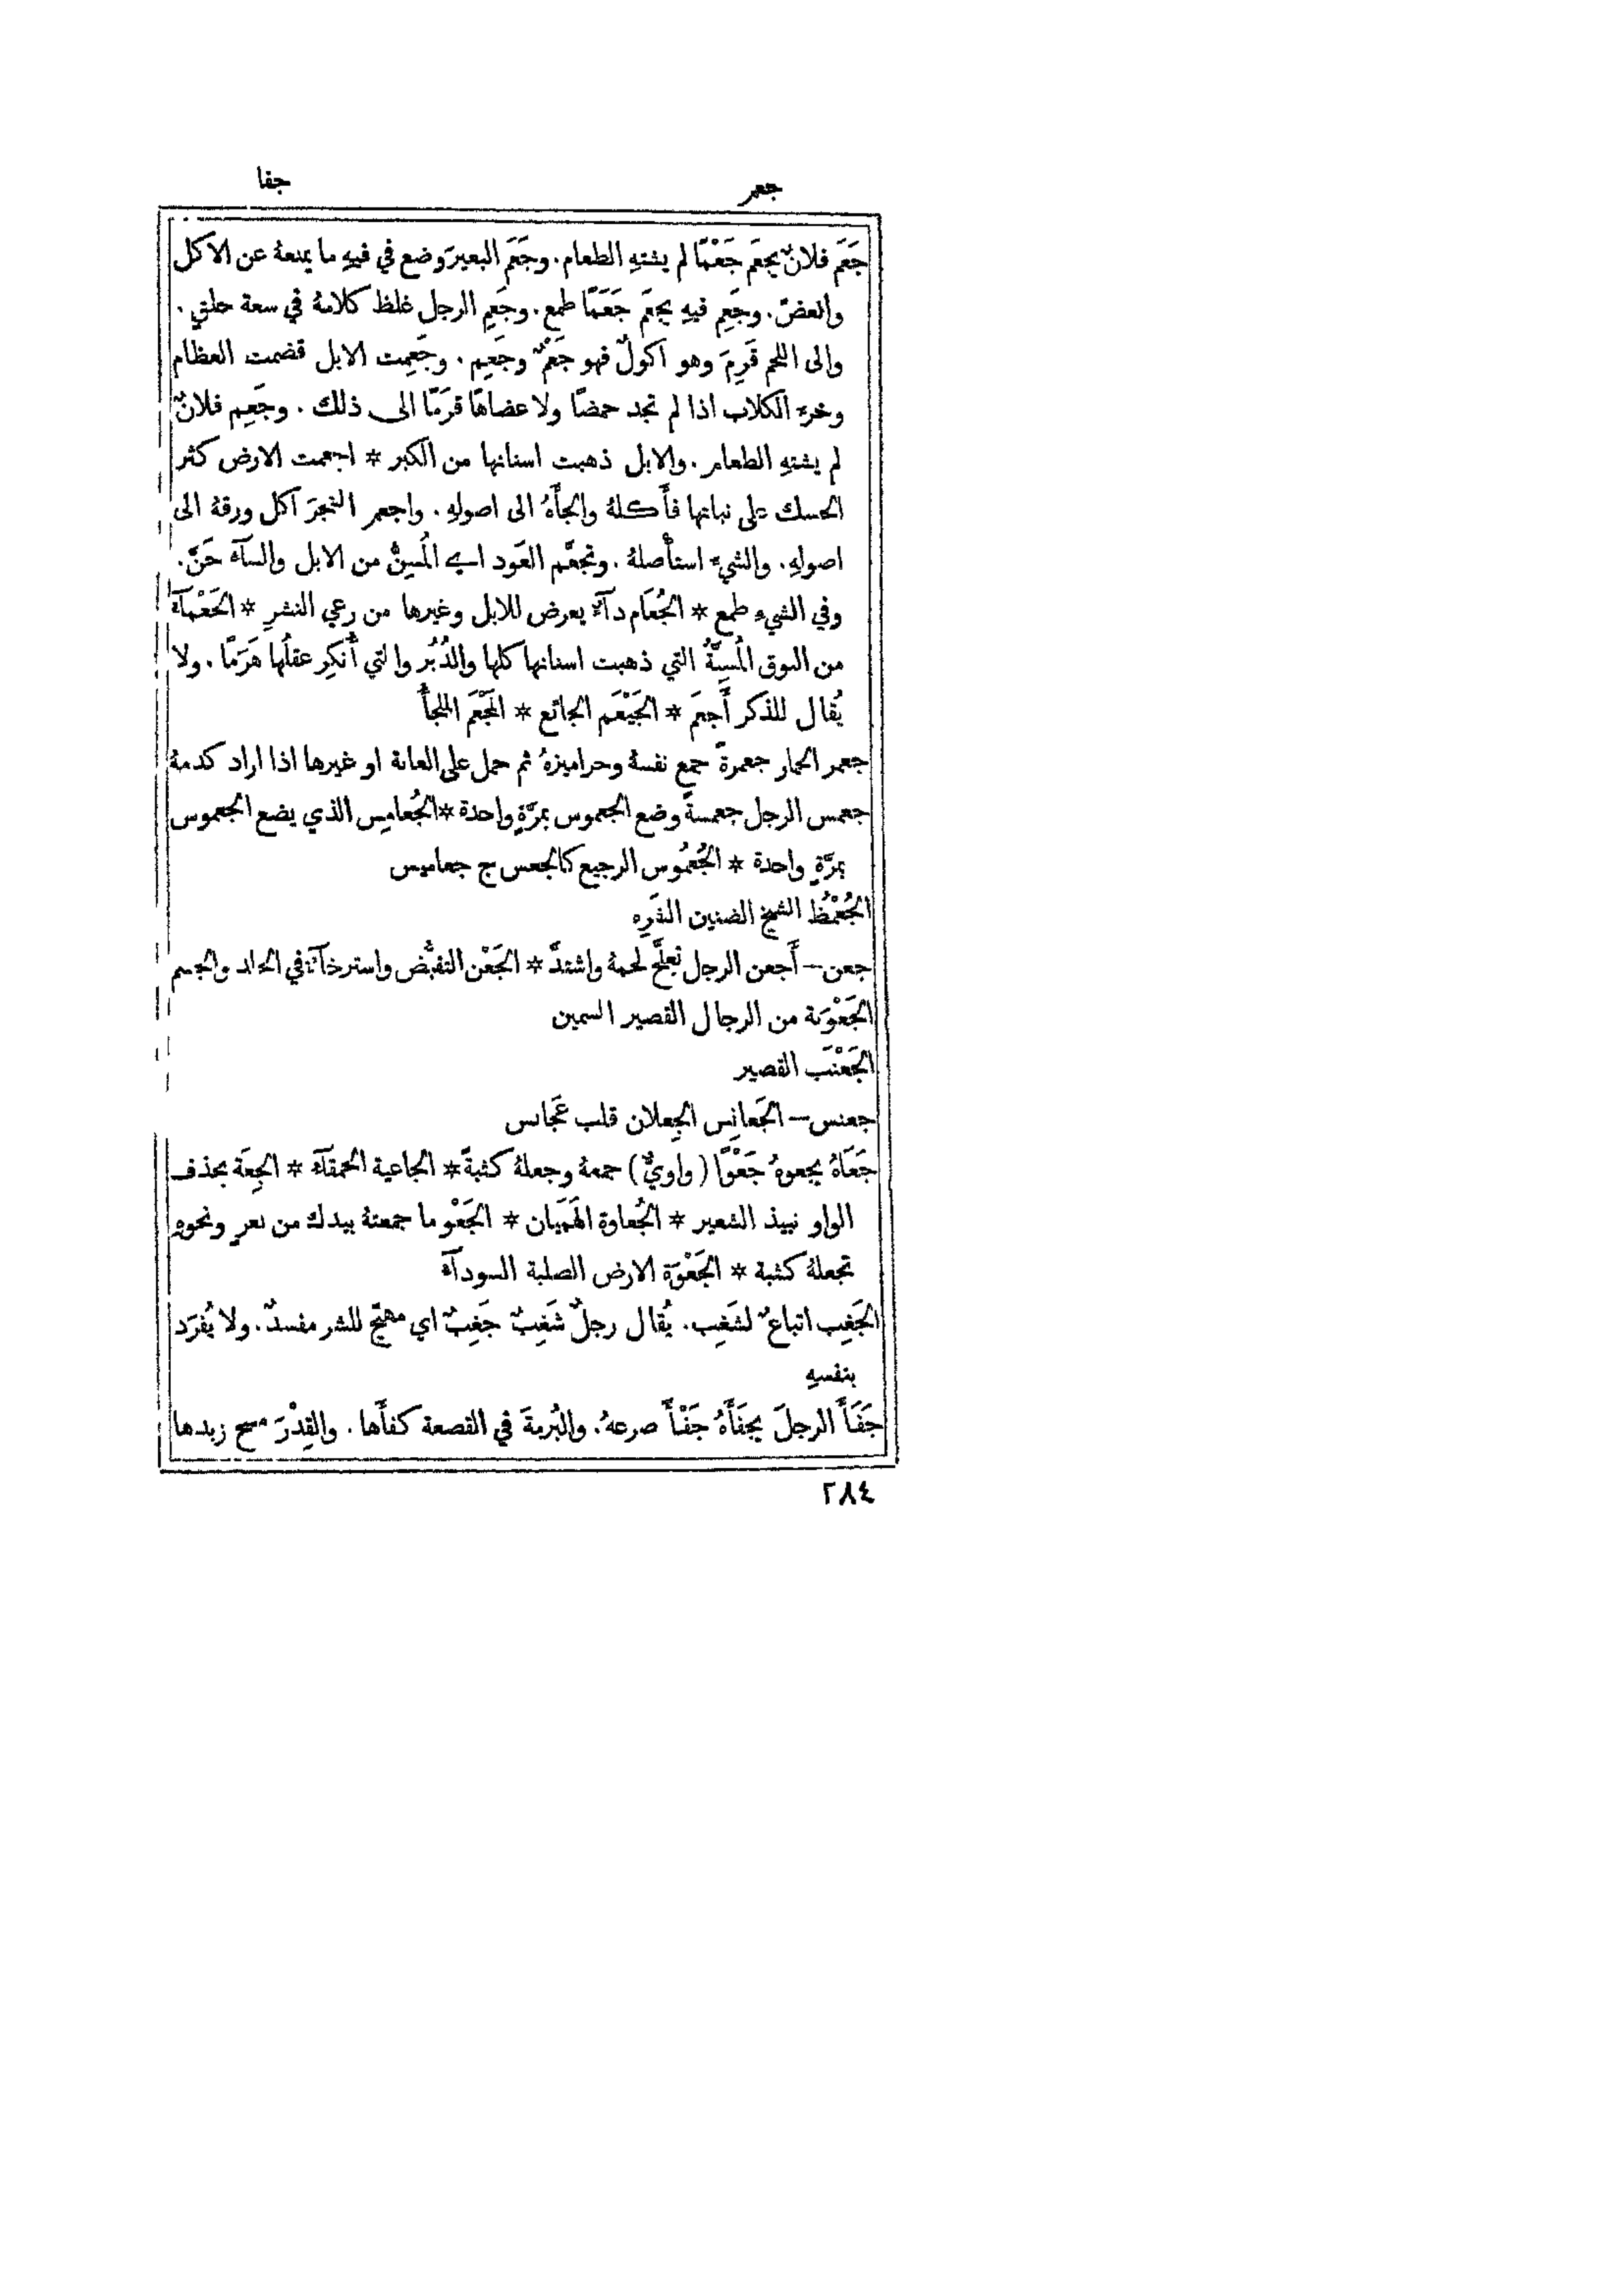 جعم
جفا
جَعَمَ فلانٌ يجعَم جَعْمًا لم يشتهِ الطعام. وجَعَم البعيرَ وضع في فيهِ ما يمنعهُ عن الاكل
والعضّ. وجَعِم فيهِ يجعَم جَعَمًا طمع. وجَعِم الرجل غلظ كلامهُ في سعة حلقٍ.
والى اللحم قَرِمَ وهو اكولٌ فهو جَعْمٌ وجَعِم. وجَعِمت الابل قضمت العظام
وخرءَ الكلاب اذا لم تجد حمضًا ولا عضاهًا قرَمًا الى ذلك. وجَعِم فلانٌ
لم يشتهِ الطعام. والابل ذهبت اسنانها من الكبر * اجعمت الارض كثر
الحسك على نباتها فأَكلهُ والجأَهُ الى اصولهِ. واجعم الشجرَ اكل ورقهُ الى
اصولهِ. والشيءَ استأْصلهُ. وتجعَّم العَود اي المُسِنُّ من الابل والساۤءَ حَنَّ.
وفي الشيءِ طمع * الجُعَام داۤءٌ يعرض للابل وغيرها من رعي النشرِ * الجَعْمَاۤءَ
من النوق المُسِنَّةُ التي ذهبت اسنانها كلها والدُبُر والتي أُنكِر عقلُها هَرَمًا. ولا
يُقال للذكر أَجعَم * الجَيْعَم الجائع * المَجْعَم الملجأُ
جعمر الحمار جعمرةً جمع نفسهُ وحراميزهُ ثم حمل على العانة او غيرها اذا اراد كدمهُ
جعمس الرجل جعمسةً وضع الجعموس بمرَّةٍ واحدة * الجُعامِس الذي يضع الجعموس
بمرَّةٍ واحدة * الجُعمُوس الرجيع كالجعس ج جعاميس
الجُعْمُظ الشيخ الضنين الشَرِه
جعن — أَجعن الرجل تعلَّج لحمهُ واشتدَّ * الجَعْن التقبُّض واسترخاۤءٌ في الجلد والجسم
الجَعْوَنة من الرجال القصير السمين
الجَعْنَب القصير
جعنس — الجَعانِس الجِعلان قلب عَجَانس
جَعَاهُ يجعوهُ جَعْوًا (واويٌّ) جمعهُ وجعلهُ كثبةً * الجاعية الحمقاۤءَ * الجِعَة بحذف
الواو نبيذ الشعير * الجُعاوة الهَمَيان * الجَعْو ما جمعتهُ بيدك من بعرٍ ونحوهِ
تجعلهُ كثبة * الجَعْوَة الارض الصلبة السوداۤءَ
الجَغِب اتباعٌ لشَغِب. يُقال رجلٌ شَغِبٌ جَغِبٌ اي مهيّج للشر مفسدٌ. ولا يُفرَد
بنفسهِ
جَفَأَ الرجلَ يجفَأَهُ جَفْأً صرعهُ. والبُرمةَ في القصعة كفأَها. والقِدْرَ مسح زبدها
٢٨٤